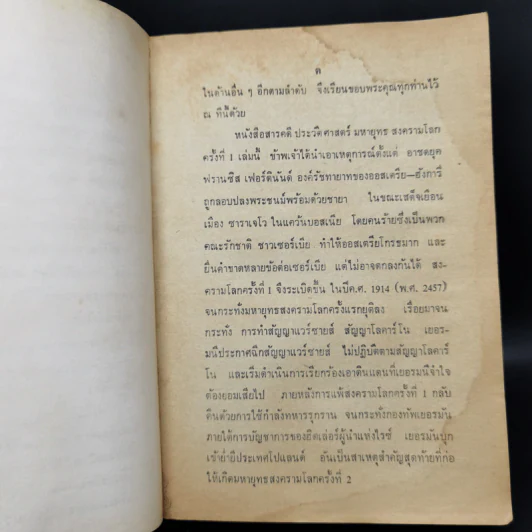 ๓
ในด้านอื่น ๆ อีกตามลำดับ จึงเรียนขอบพระคุณทุกท่านไว้
ณ ที่นี้ด้วย
หนังสือสารคดี ประวัติศาสตร์ มหายุทธ สงครามโลก
ครั้งที่ 1 เล่มนี้ ข้าพเจ้าได้นำเอาเหตุการณ์ตั้งแต่ อาชดยุค
ฟรานซิส เฟอร์ดินันด์ องค์รัชทายาทของออสเตรีย—ฮังการี
ถูกลอบปลงพระชนม์พร้อมด้วยชายา ในขณะเสด็จเยือน
เมือง ซาราเจโว ในแคว้นบอสเนีย โดยคนร้ายซึ่งเป็นพวก
คณะรักชาติ ชาวเซอร์เบีย ทำให้ออสเตรียโกรธมาก และ
ยื่นคำขาดหลายข้อต่อเซอร์เบีย แต่ไม่อาจตกลงกันได้ สง-
ครามโลกครั้งที่ 1 จึงระเบิดขึ้น ในปีค.ศ. 1914 (พ.ศ. 2457)
จนกระทั่งมหายุทธสงครามโลกครั้งแรกยุติลง เรื่อยมาจน
กระทั่ง การทำสัญญาแวร์ซายส์ สัญญาโลคาร์โน เยอร-
มนีประกาศฉีกสัญญาแวร์ซายส์ ไม่ปฏิบัติตามสัญญาโลคาร์
โน และเริ่มดำเนินการเรียกร้องเอาดินแดนที่เยอรมนีจำใจ
ต้องยอมเสียไป ภายหลังการแพ้สงครามโลกครั้งที่ 1 กลับ
คืนด้วยการใช้กำลังทหารรุกราน จนกระทั่งกองทัพเยอรมัน
ภายใต้การบัญชาการของฮิตเล่อร์ผู้นำแห่งไรซ์ เยอรมันบุก
เข้าย่ำยีประเทศโปแลนด์ อันเป็นสาเหตุสำคัญสุดท้ายที่ก่อ
ให้เกิดมหายุทธสงครามโลกครั้งที่ 2